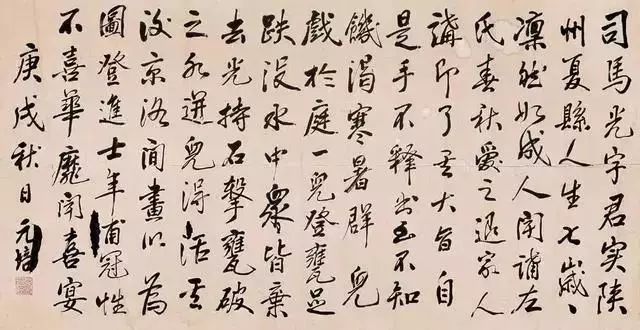 司馬光字君實陝
州夏縣人生七歲〻
凜然如成人聞講左
氏春秋愛之退家人
講即了其大旨自
是手不釋書至不知
饑渴寒暑群兒
戲於庭一兒登甕足
跌沒水中眾皆棄
去光持石擊甕破
之水迸兒得活其
後京洛間畫以為
圖登進士年甫冠性
不喜華靡聞喜宴
庚戌秋日元培